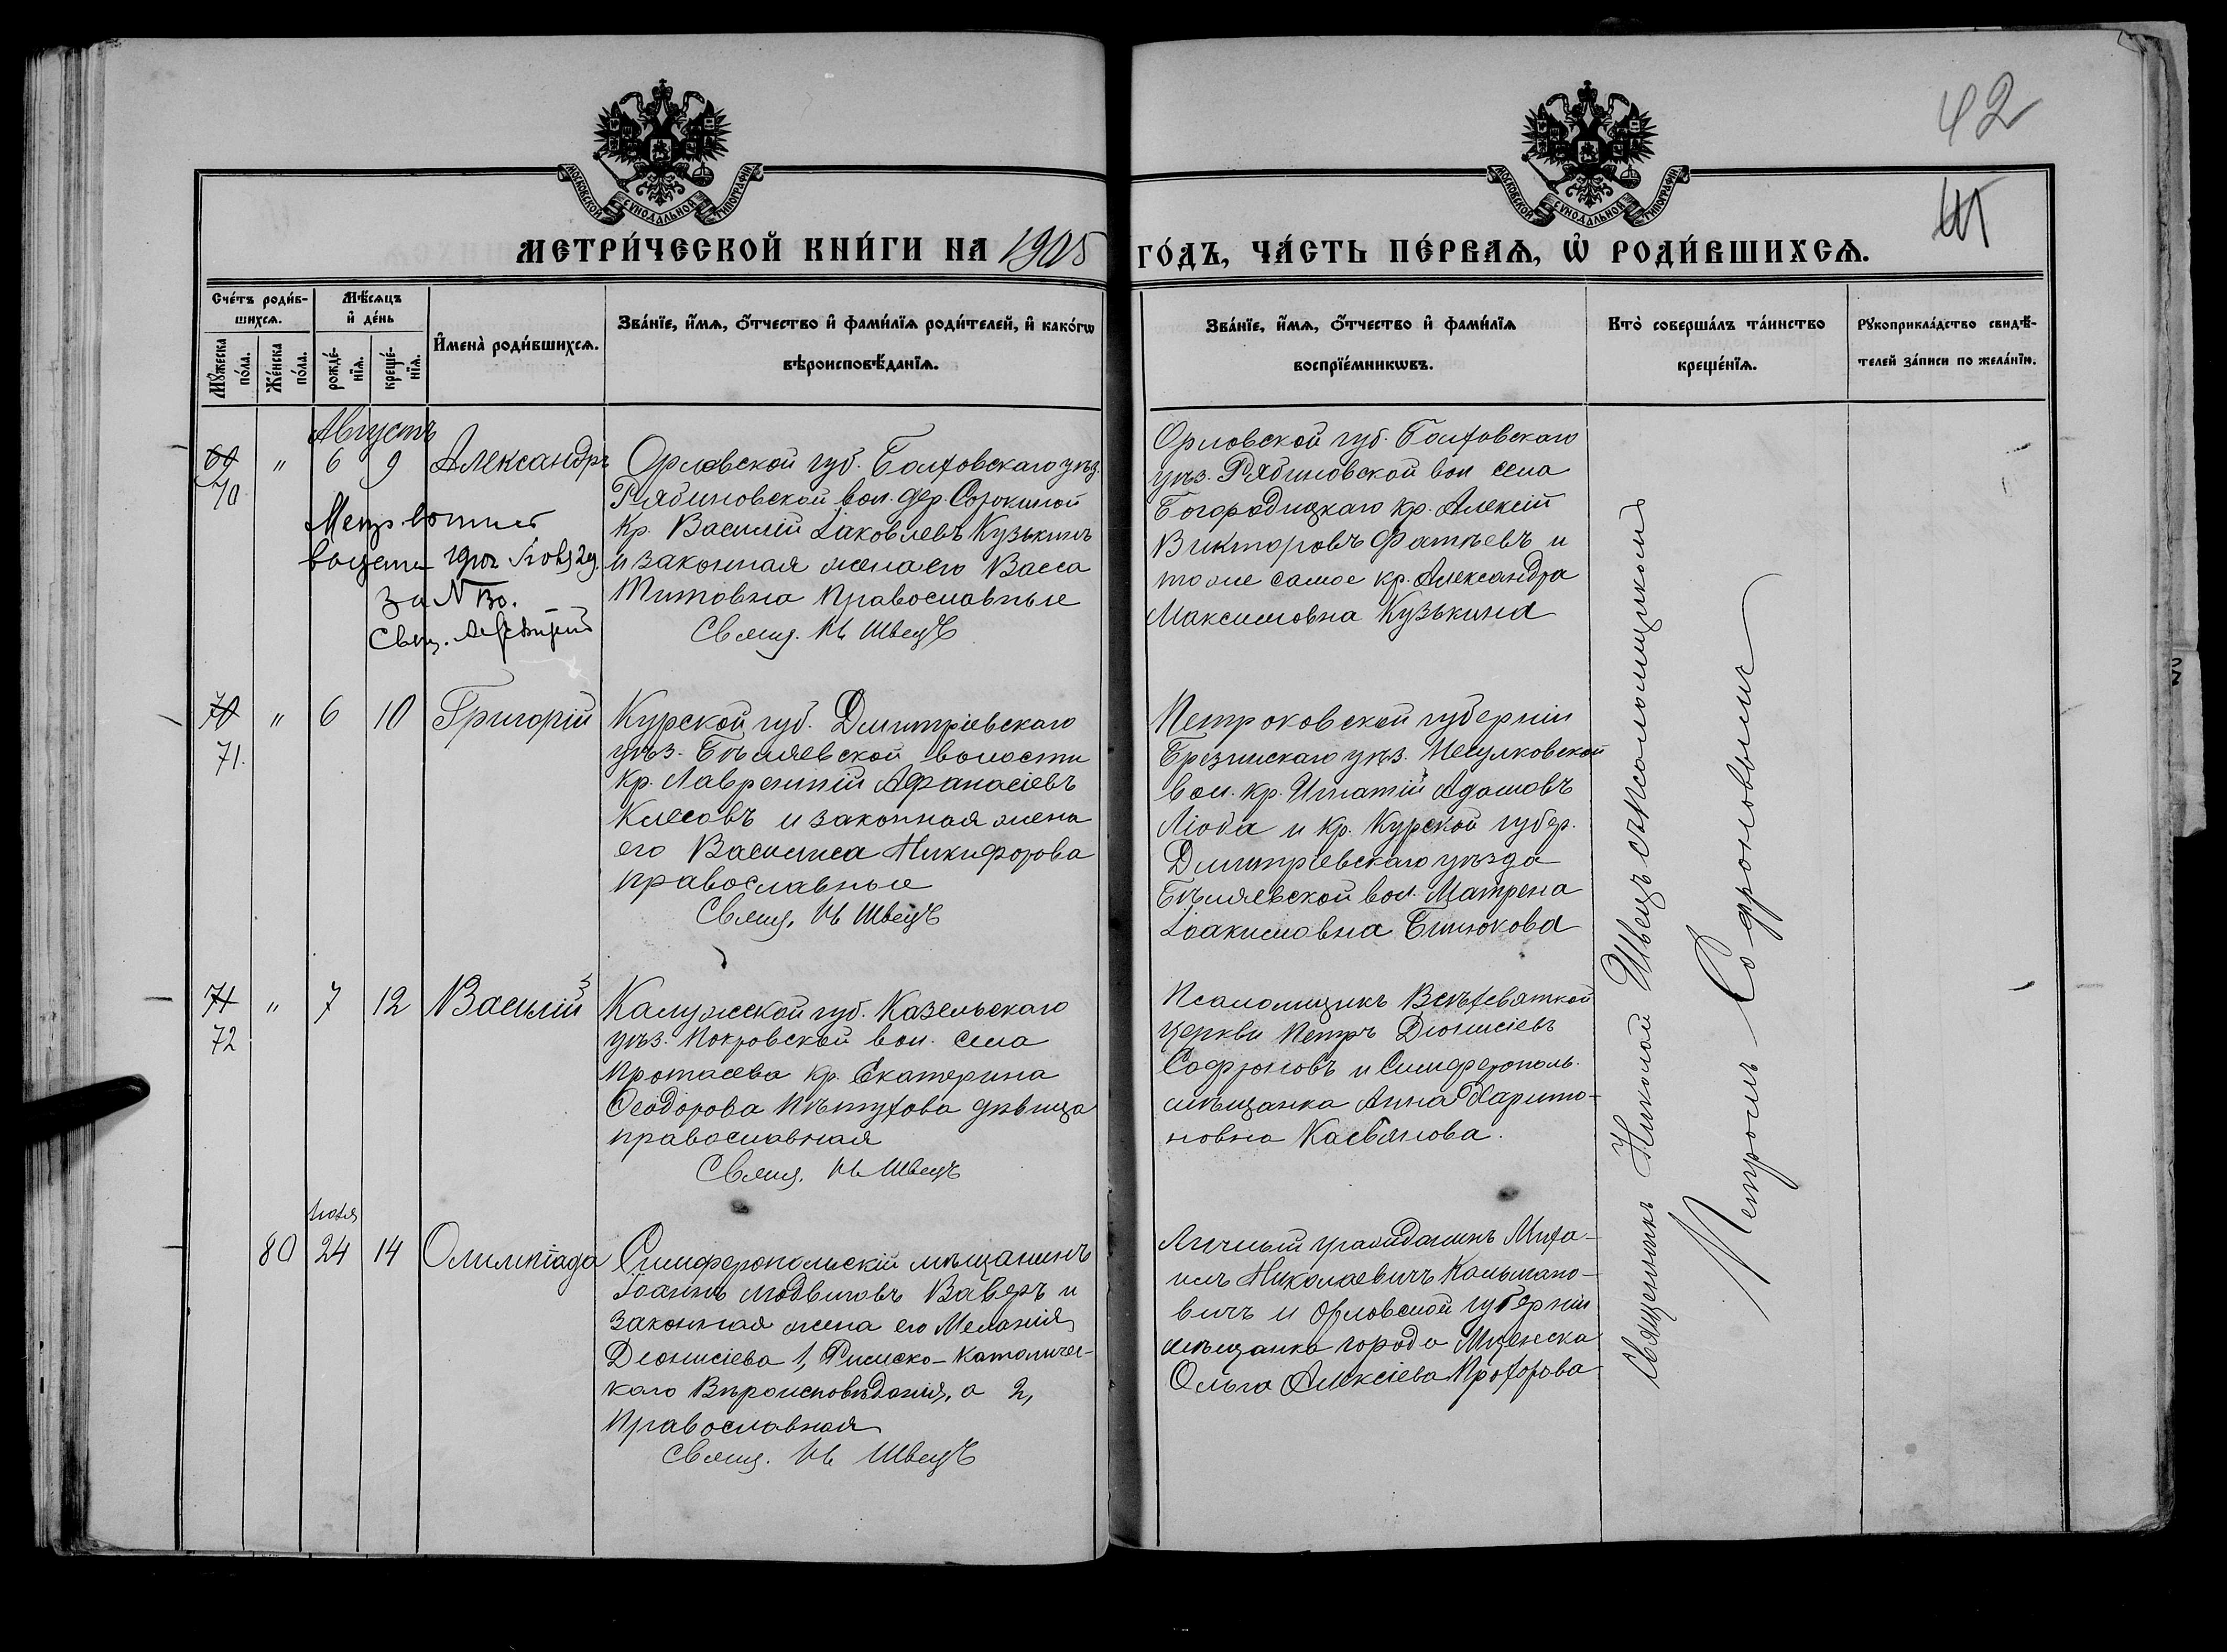 42
МОСКОВСКОЙ СѴНОДАЛЬНОЙ ТИПОГРАФІИ
МОСКОВСКОЙ СѴНОДАЛЬНОЙ ТИПОГРАФІИ
МЕТРИ́ЧЕСКОЙ КНИ́ГИ НА 1905 ГО́ДЪ, ЧА́СТЬ ПЕ́РВАѦ, Ѡ҆ РОДИ́ВШИХСѦ.
Сче́тъ роди́в-
шихсѧ.
Мꙋ́жеска по́ла.
Же́нска по́ла.
Мѣ́сѧцъ
и҆ де́нь
рожде́-
нїѧ.
креще́-
нїѧ.
И҆мена̀ роди́вшихсѧ.
Зва́нїе, и҆́мѧ, ѻ҆́тчество и҆ фами́лїѧ роди́телей, и҆ како́гѡ
вѣроисповѣ́данїѧ.
Зва́нїе, и҆́мѧ, ѻ҆́тчество и҆ фами́лїѧ
воспрїе́мникѡвъ.
Кто̀ соверша́лъ та́инство
креще́нїѧ.
Рꙋкоприкла́дство свидѣ́-
телей за́писи по жела́нїю.
Августъ
69 " 6 9 Александръ
70
Орловской губ. Болховскаго уѣз.
Рябиновской вол. дер. Сорокиной
кр. Василій Іаковлевъ Кузькинъ
и законная жена его Васса
Титовна православные
Свящ. Н. Швецъ
Орловской губ. Болховскаго
уѣз. Рябиновской вол села
Богородицкаго кр. Алексій
Викторовъ Фатѣевъ и
тоже самое кр. Александра
Максимовна Кузькина
за N 130.
Свящ.
70 " 6 10 Григорій
71.
Курской губ. Димитріевскаго
уѣз. Бѣляевской волости
кр. Лаврентій Афанасіевъ
Клесовъ и законная жена
его Василиса Никифорова
православные
Свящ. Н. Швецъ
Петроковской губерніи
Брезинскаго уѣз.
вол. кр. Игнатій Адамовъ
и кр. Курской губер.
Димитріевскаго уѣзда
Бѣляевской вол. Матрена
Іоакимовна Бинюкова
71 " 7 12 Василій
72
Калужской губ. Казельскаго
уѣз. Покровской вол. села
Протасева кр. Екатерина
Ѳеодорова Пѣтухова дѣвица
православная
Свящ. Н. Швецъ
Псаломщикъ Всѣхсвятской
церкви Петръ Діонисіевъ
Софроновъ и Симферополь.
мѣщанка Анна Харито-
новна Касьянова.
Іюля
80 24 14 Олимпіада
Симферопольскій мѣщанинъ
Іоаннъ Людвиговъ Ваверъ и
законная жена его Меланія
Діонисіева 1, Римско-Католичес-
каго Вѣроисповѣданія, а 2,
Православная
Свящ. Н. Швецъ
Личный гражданинъ Миха-
илъ Николаевичъ Кальмано-
вичъ и Орловской губерніи
мѣщанка города Мценска
Ольга Алексіева Прохорова
Священникъ Николай Швецъ съ Псаломщикомъ
Петромъ Софроновымъ